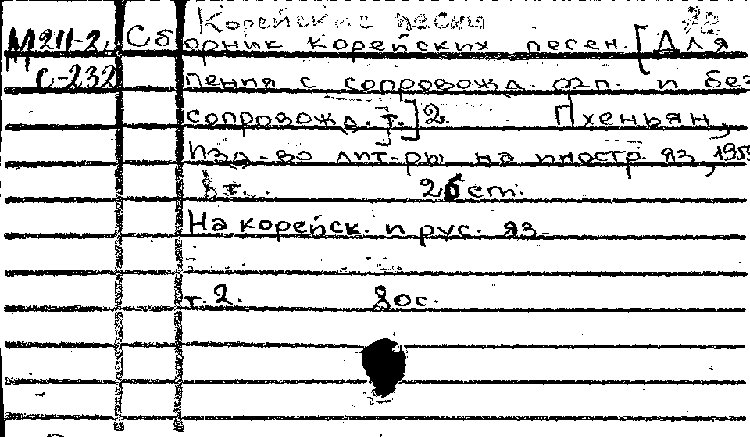 Корейские песни
М211-2 Сборник корейских песен. [Для
С-232 пения с сопровожд. фп. и без
сопровожд. т.] 2. Пхеньян,
Изд-во лит-ры на иностр. яз,
8т. 26 ст.
На корейск. и рус. яз.
т. 2. 80с.